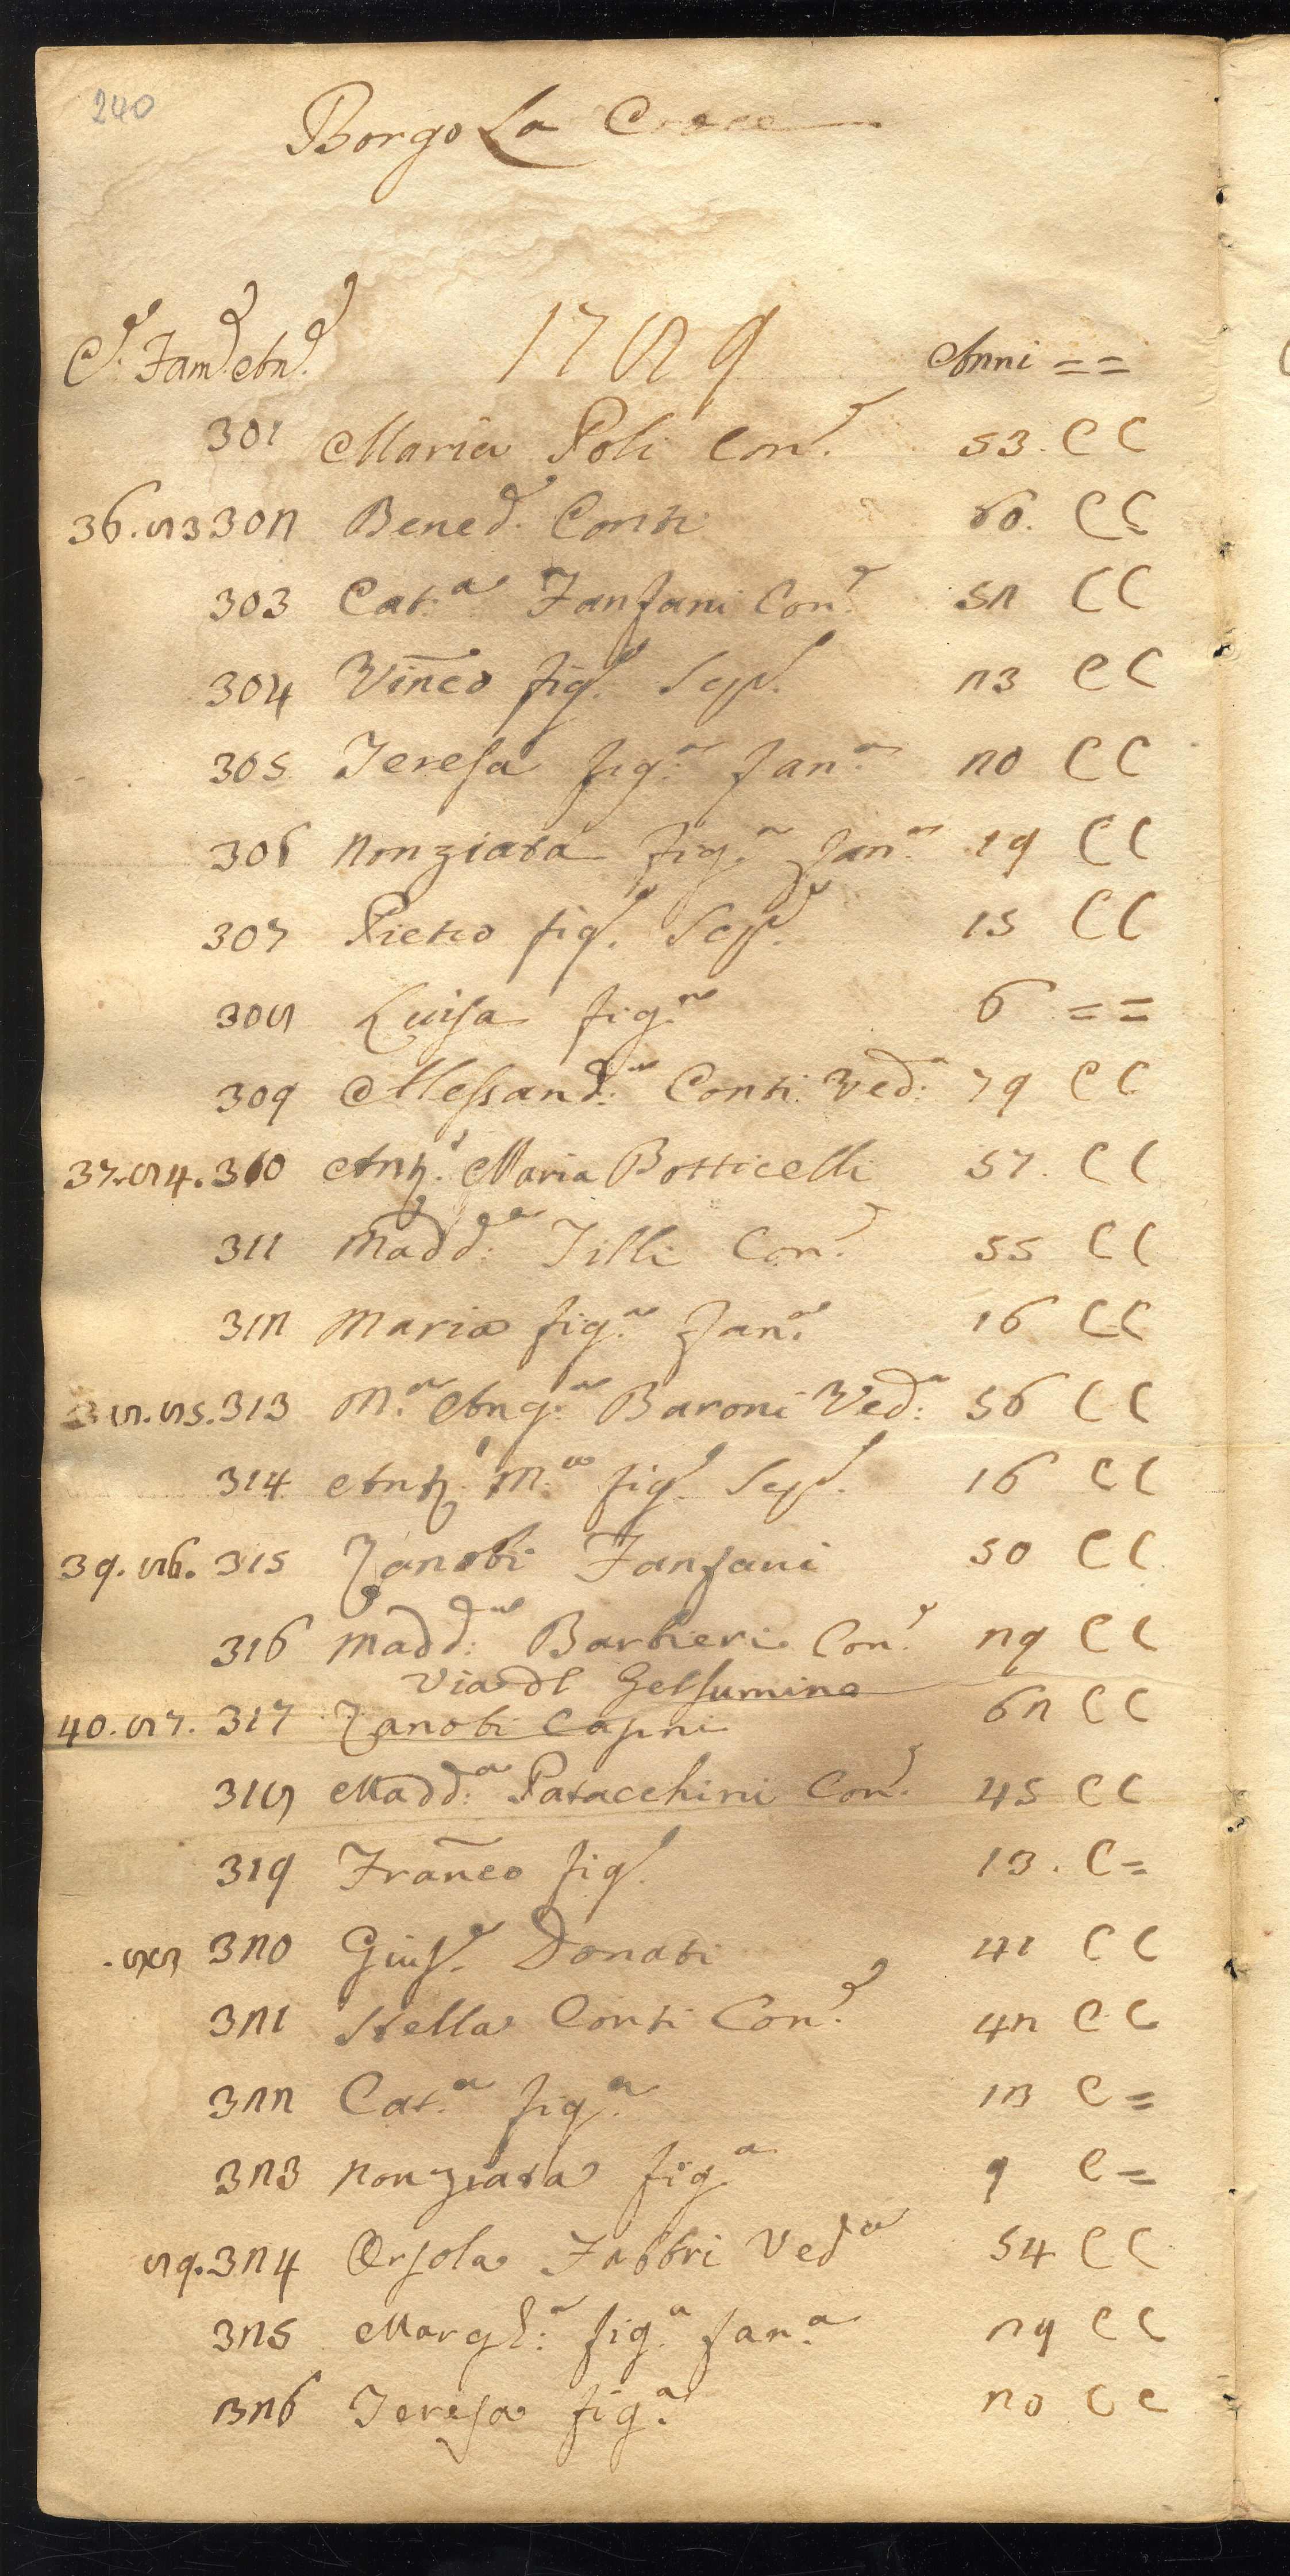 240
Borgo La Croce
C.e Fam.e An.e 1789 Anni = =
301 Maria Poli Con.e 53. C C
36. 83 302 Bened.o Conti 60. C C
303 Cat.a Fanfani Con.e 52 C C
304 Vinc̄o fig.o Scap.o 23 C C
305 Teresa fig.a Fan.a 20 C C
306 Nonziata fig.a Fan.a 19 C C
307 Pietro fig.o Scap.o 15 C C
308 Luisa fig.a 6 = =
309 Alessand.a Conti Ved.a 79 C C
37. 84. 310 Ant.o Maria Botticelli 57. C C
311 Madd.a Tilli Con.e 55 C C
312 Maria fig.a Fan.a 16 C C
38. 85. 313 M.a Ang.a Baroni Ved.a 56 C C
314 Ant.o M.a fig.o Scap.o 16 C C
39. 86. 315 Zanobi Fanfani 50 C C
316 Madd.a Barbieri Con.e 29 C C
Via dl Gelsumino
40. 87. 317 Zanobi Capni 62 C C
318 Madd.a Patacchini Con.e 45 C C
319 Franc̄o fig.o 13. C =
. 88 320 Gius.e Donati 41 C C
321 Stella Conti Con.e 42 C C
322 Cat.a fig.a 13 C =
323 Nonziata fig.a 9 C =
89. 324 Orsola Fabbri Ved.a 54 C C
325 Margh.a fig.a Fan.a 29 C C
326 Teresa fig.a 20 C C